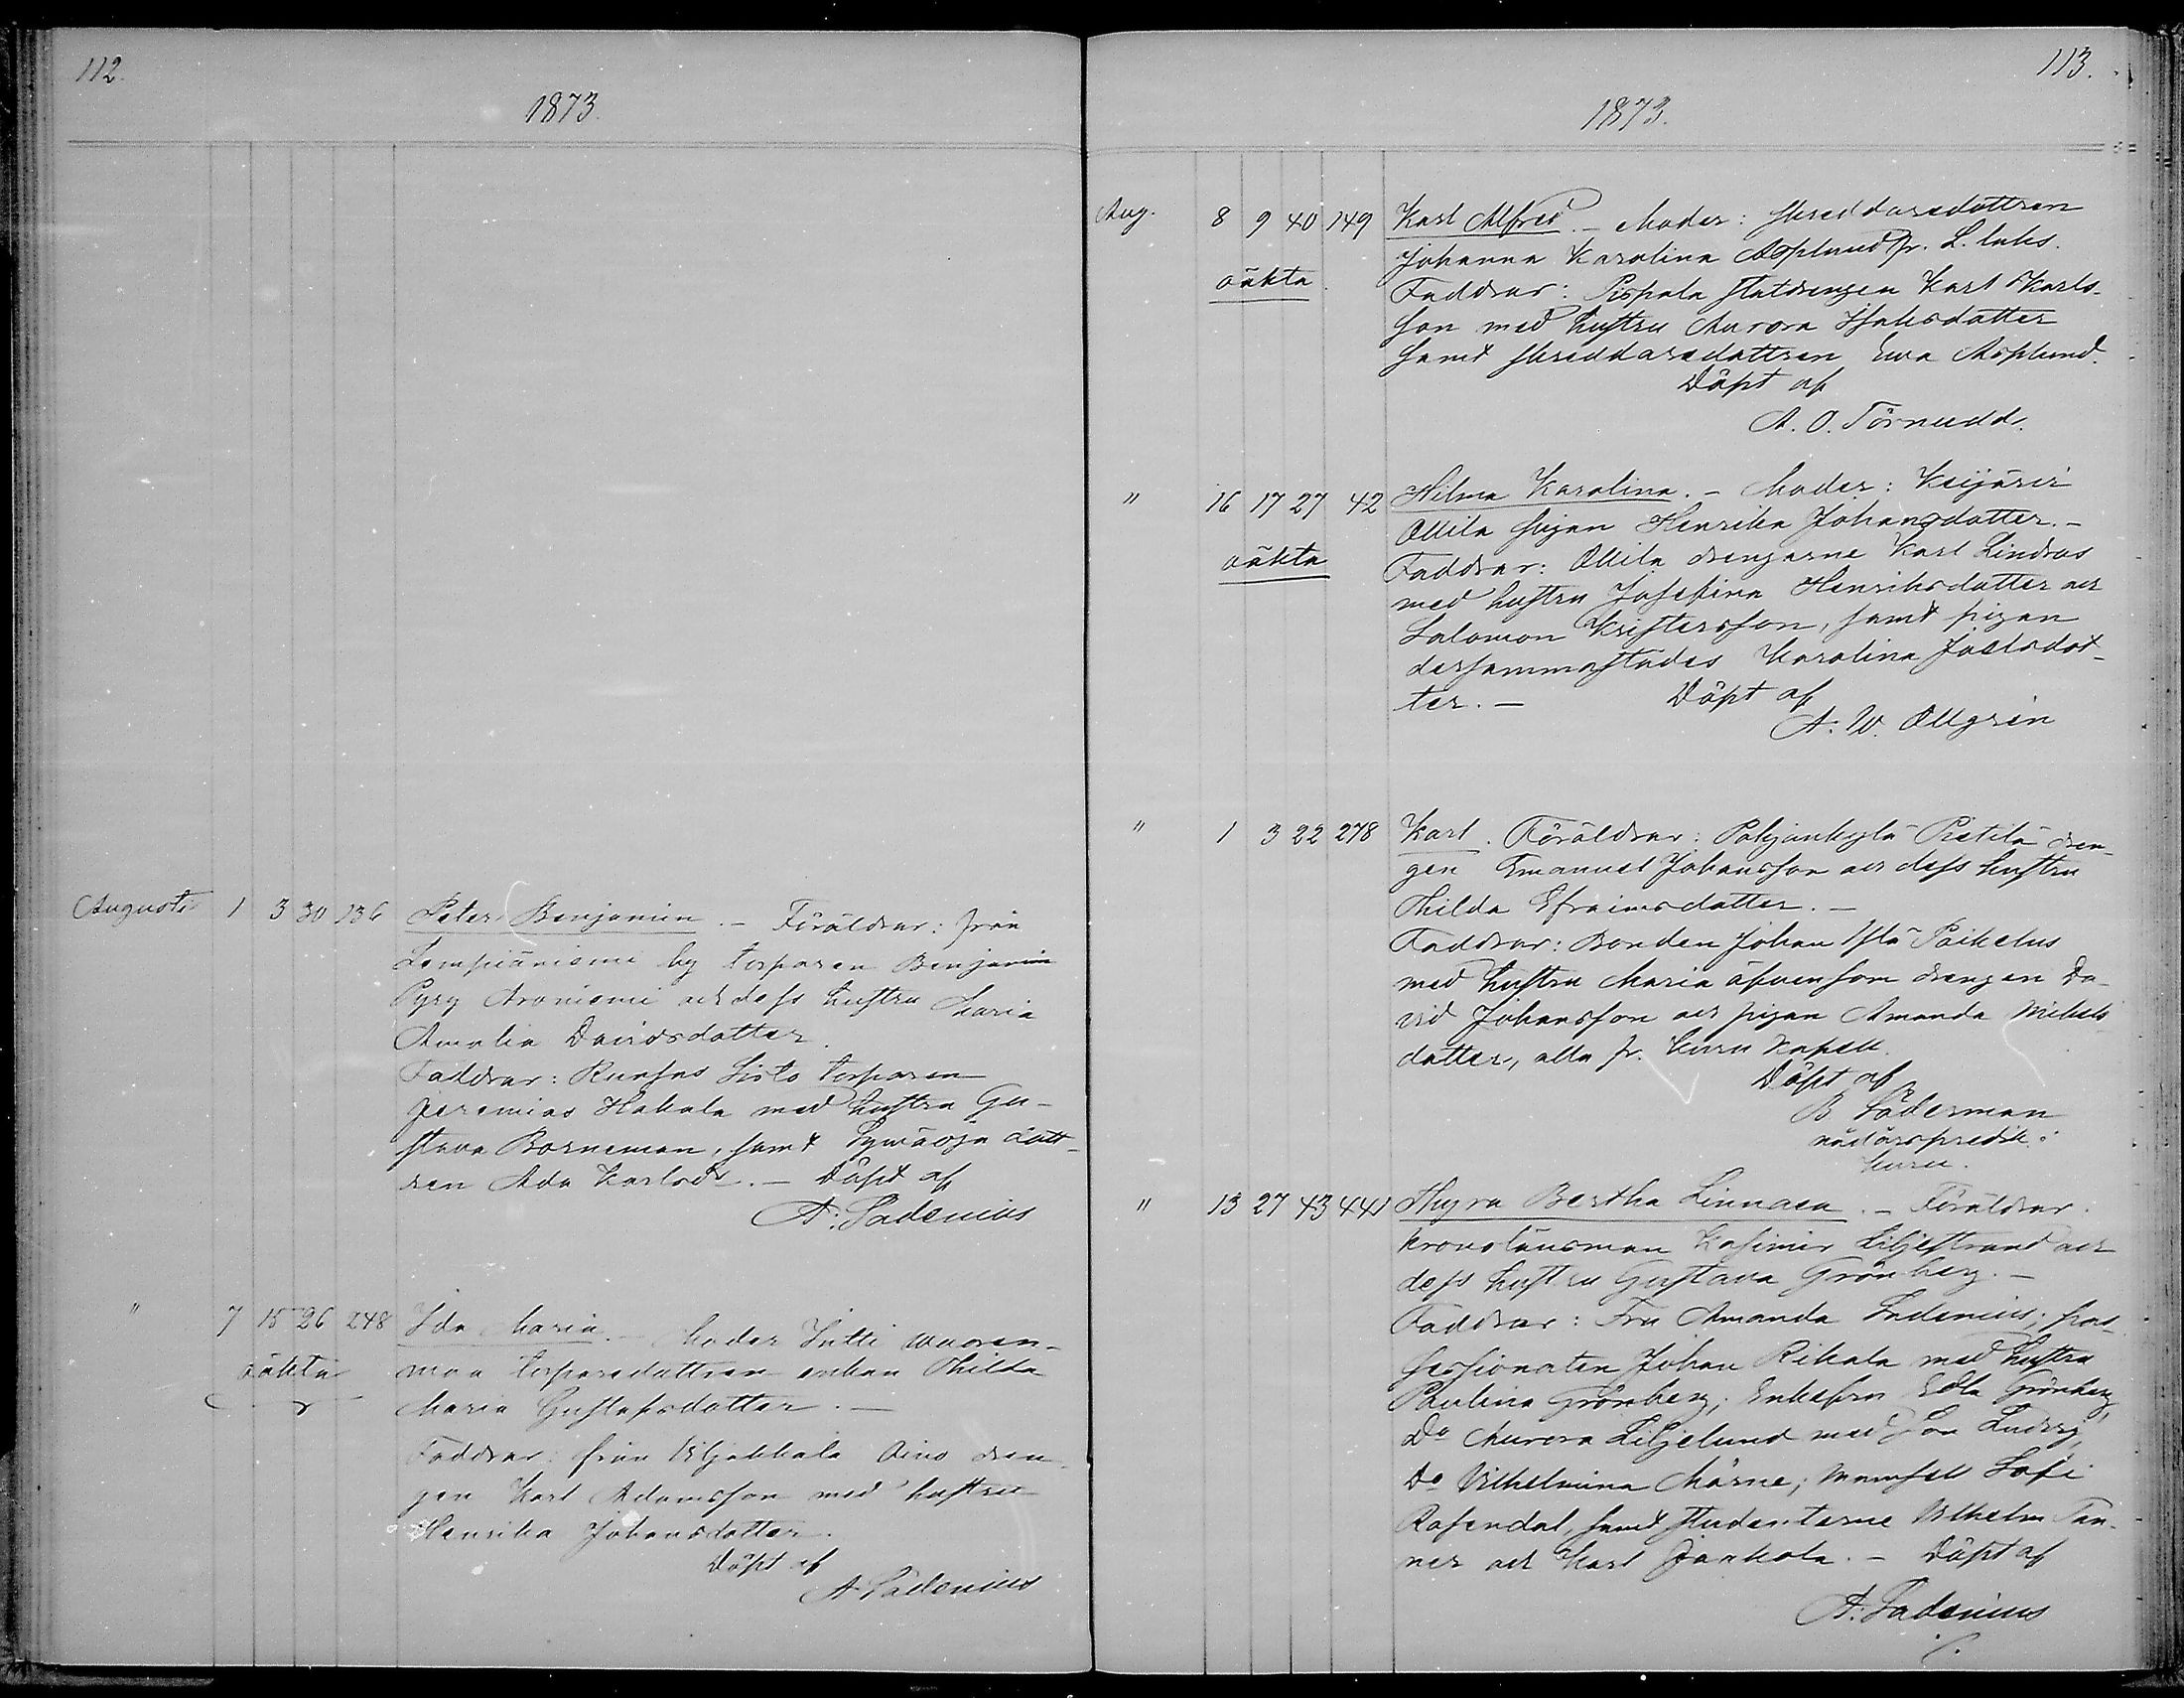 112.
1873.
Augusti 1 3 30 136 Peter Benjamin. – Föräldrar: från
Lempiäniemi by torparen Benjamin
Pyry Aroniemi och dess hustru Maria
Amalia Davidsdotter.
Faddrar: Runsas Sisto torparen
Jeremias Hakala med hustru Gu-
stava Borneman, samt dott-
ren Ada Karlsdr. – Döpt af
A. Ladenius
" 7 15 26 248 Ida Maria. – Moder
oäkta maa torparedottren enkan Thilda
Maria Gustafsdotter. –
Faddrar: från Aino dren-
gen Karl Adamsson med hustru
Henrika Johansdotter.
Döpt af
A Ladenius
113.
1873.
Aug. 8 9 40 149 Karl Alfred. – Moder: skreddaredottren
Johanna Karolina Asplund fr. L.
oäkta. Faddrar: Pispala statdrengen Karl Karls-
son med hustru Aurora Isaksdotter
samt skreddaredottren Eva Asplund.
Döpt af
A. O. Törnudd.
" 16 17 27 42 Hilma Karolina. – Moder: Keijäris
Ollila pigan Henrika Johansdotter. –
oäkta Faddrar: Ollila drengarne Karl Lindroos
med hustru Josefina Henriksdotter och
Salomon Kristersson, samt pigan
dersammastädes Karolina Joelsdot-
ter. – Döpt af
A. W. Ollgren
" 1 3 22 278 Karl. Föräldrar: Pohjankylä Pietilä dren-
gen Emanuel Johansson och dess hustru
Thilda Efraimsdotter. –
Faddrar: Bonden Johan Paikelus
med hustru Maria äfvensom drengen Da-
vid Johansson och pigan Amanda Mikels
dotter, alla fr. Kuru Kapell.
Döpt af
B Söderman
nödårspredik. i
Kuru.
" 13 27 43 441 Thyra Bertha Linnaea. – Föräldrar.
Kronolänsman Kasimir Liljestrand och
dess hustru Gustava Grönberg. –
Faddrar: Fru Amanda Indenius; pos-
sessionaten Johan Rikala med hustru
Paulina Grönberg; Enkefru Edla Grönberg,
Do Aurora Liljelund med son Ludvig,
Do Vilhelmina Mörne; Mamsell Sofi
Rosendal, samt studenterne Vilhelm Tan-
ner och Karl Jaakola. – Döpt af
A. Ladenius